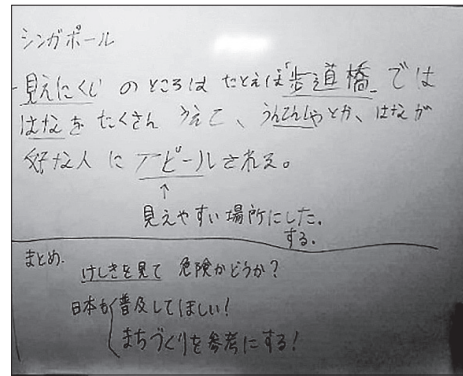 シンガポール
見えにくいのところは たとえば「歩道橋」では
はなをたくさん うえて、うんてんしゃとか、はなが
好な人に アピールされる。
↑
見えやすい場所にした。
する。
まとめ.
けしきを見て 危険かどうか?
日本も普及してほしい!
まちづくりを参考にする!